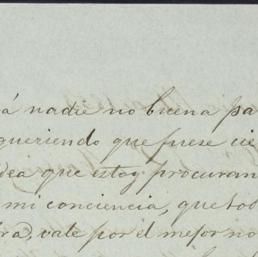 á nadie no buena pa
queriendo que fuese cie
dea que estoy procuran
mi conciencia, que tod
ra, vale por el mejor no